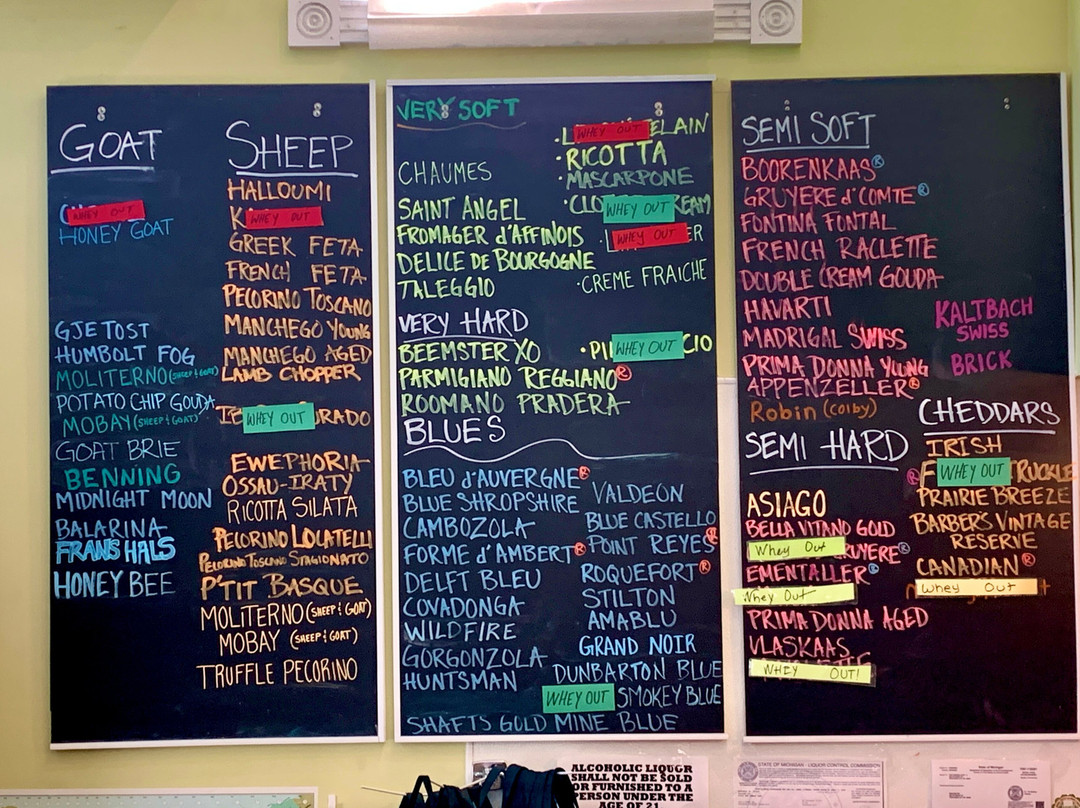 GOAT
WHEY OUT
HONEY GOAT
GJETOST
HUMBOLT FOG
MOLITERNO (SHEEP & GOAT)
POTATO CHIP GOUDA
MOBAY (SHEEP & GOAT)
GOAT BRIE
BENNING
MIDNIGHT MOON
BALARINA
FRANS HALS
HONEY BEE
SHEEP
HALLOUMI
K WHEY OUT
GREEK FETA
FRENCH FETA
PECORINO TOSCANO
MANCHEGO YOUNG
MANCHEGO AGED
LAMB CHOPPER
WHEY OUT RADO
EWEPHORIA
OSSAU-IRATY
RICOTTA SILATA
PECORINO LOCATELLI
PECORINO TOSCANO STAGIONATO
P'TIT BASQUE
MOLITERNO (SHEEP & GOAT)
MOBAY (SHEEP & GOAT)
TRUFFLE PECORINO
VERY SOFT
CHAUMES
SAINT ANGEL
FROMAGER d'AFFINOIS
DELICE DE BOURGOGNE
TALEGGIO
·L WHEY OUT ELAIN
·RICOTTA
·MASCARPONE
·CLO WHEY OUT REAM
· WHEY OUT ER
·CREME FRAICHE
VERY HARD
BEEMSTER XO
PARMIGIANO REGGIANO ®
ROOMANO PRADERA
·PI WHEY OUT CIO
BLUES
BLEU d'AUVERGNE ®
BLUE SHROPSHIRE
CAMBOZOLA
FORME d'AMBERT ®
DELFT BLEU
COVADONGA
WILDFIRE
GORGONZOLA
HUNTSMAN
VALDEON
BLUE CASTELLO
POINT REYES ®
ROQUEFORT ®
STILTON
AMABLU
GRAND NOIR
DUNBARTON BLUE
WHEY OUT SMOKEY BLUE
SHAFTS GOLD MINE BLUE
SEMI SOFT
BOORENKAAS ®
GRUYERE d' COMTE ®
FONTINA FONTAL
FRENCH RACLETTE
DOUBLE CREAM GOUDA
HAVARTI
MADRIGAL SWISS
PRIMA DONNA YOUNG
APPENZELLER ®
Robin (colby)
KALTBACH
SWISS
BRICK
SEMI HARD
ASIAGO
BELLA VITANO GOLD
Whey Out RUYERE ®
EMENTALLER ®
Whey Out
PRIMA DONNA AGED
VLASKAAS
WHEY OUT!
CHEDDARS
IRISH
® F WHEY OUT TRUCKLE
PRAIRIE BREEZE
BARBER'S VINTAGE
RESERVE
CANADIAN ®
Whey Out
ALCOHOLIC LIQUOR
SHALL NOT BE SOLD
OR FURNISHED TO A
PERSON UNDER THE
AGE OF 21
STATE OF MICHIGAN - LIQUOR CONTROL COMMISSION